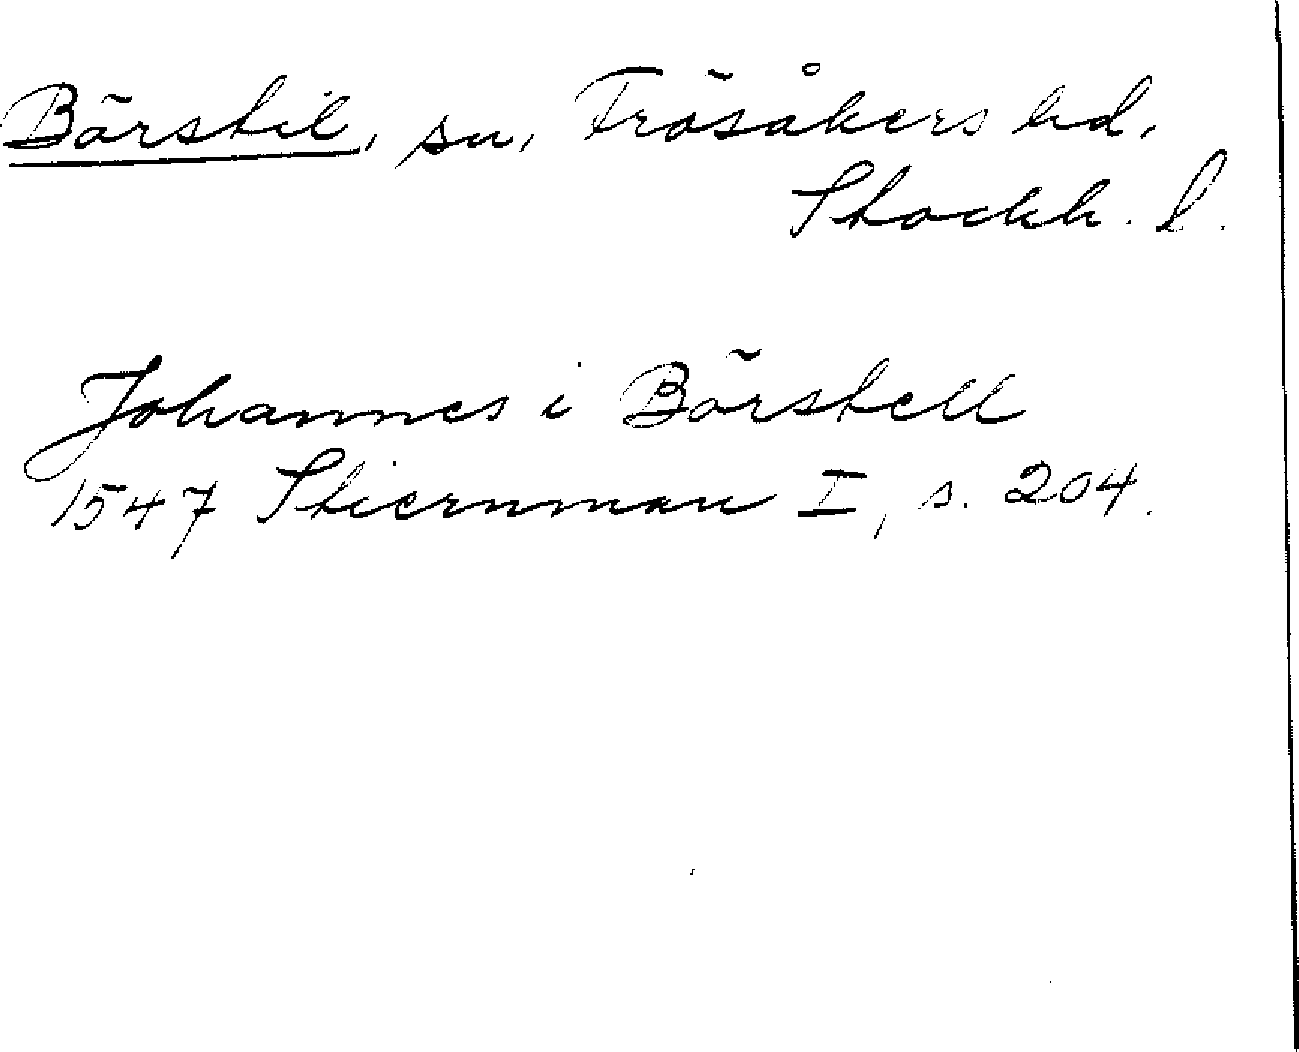 Börstil, sn, Frösåkers hd.
Stockh. l.
Johannes i Börstell
1547 Stiernman I, s. 204.